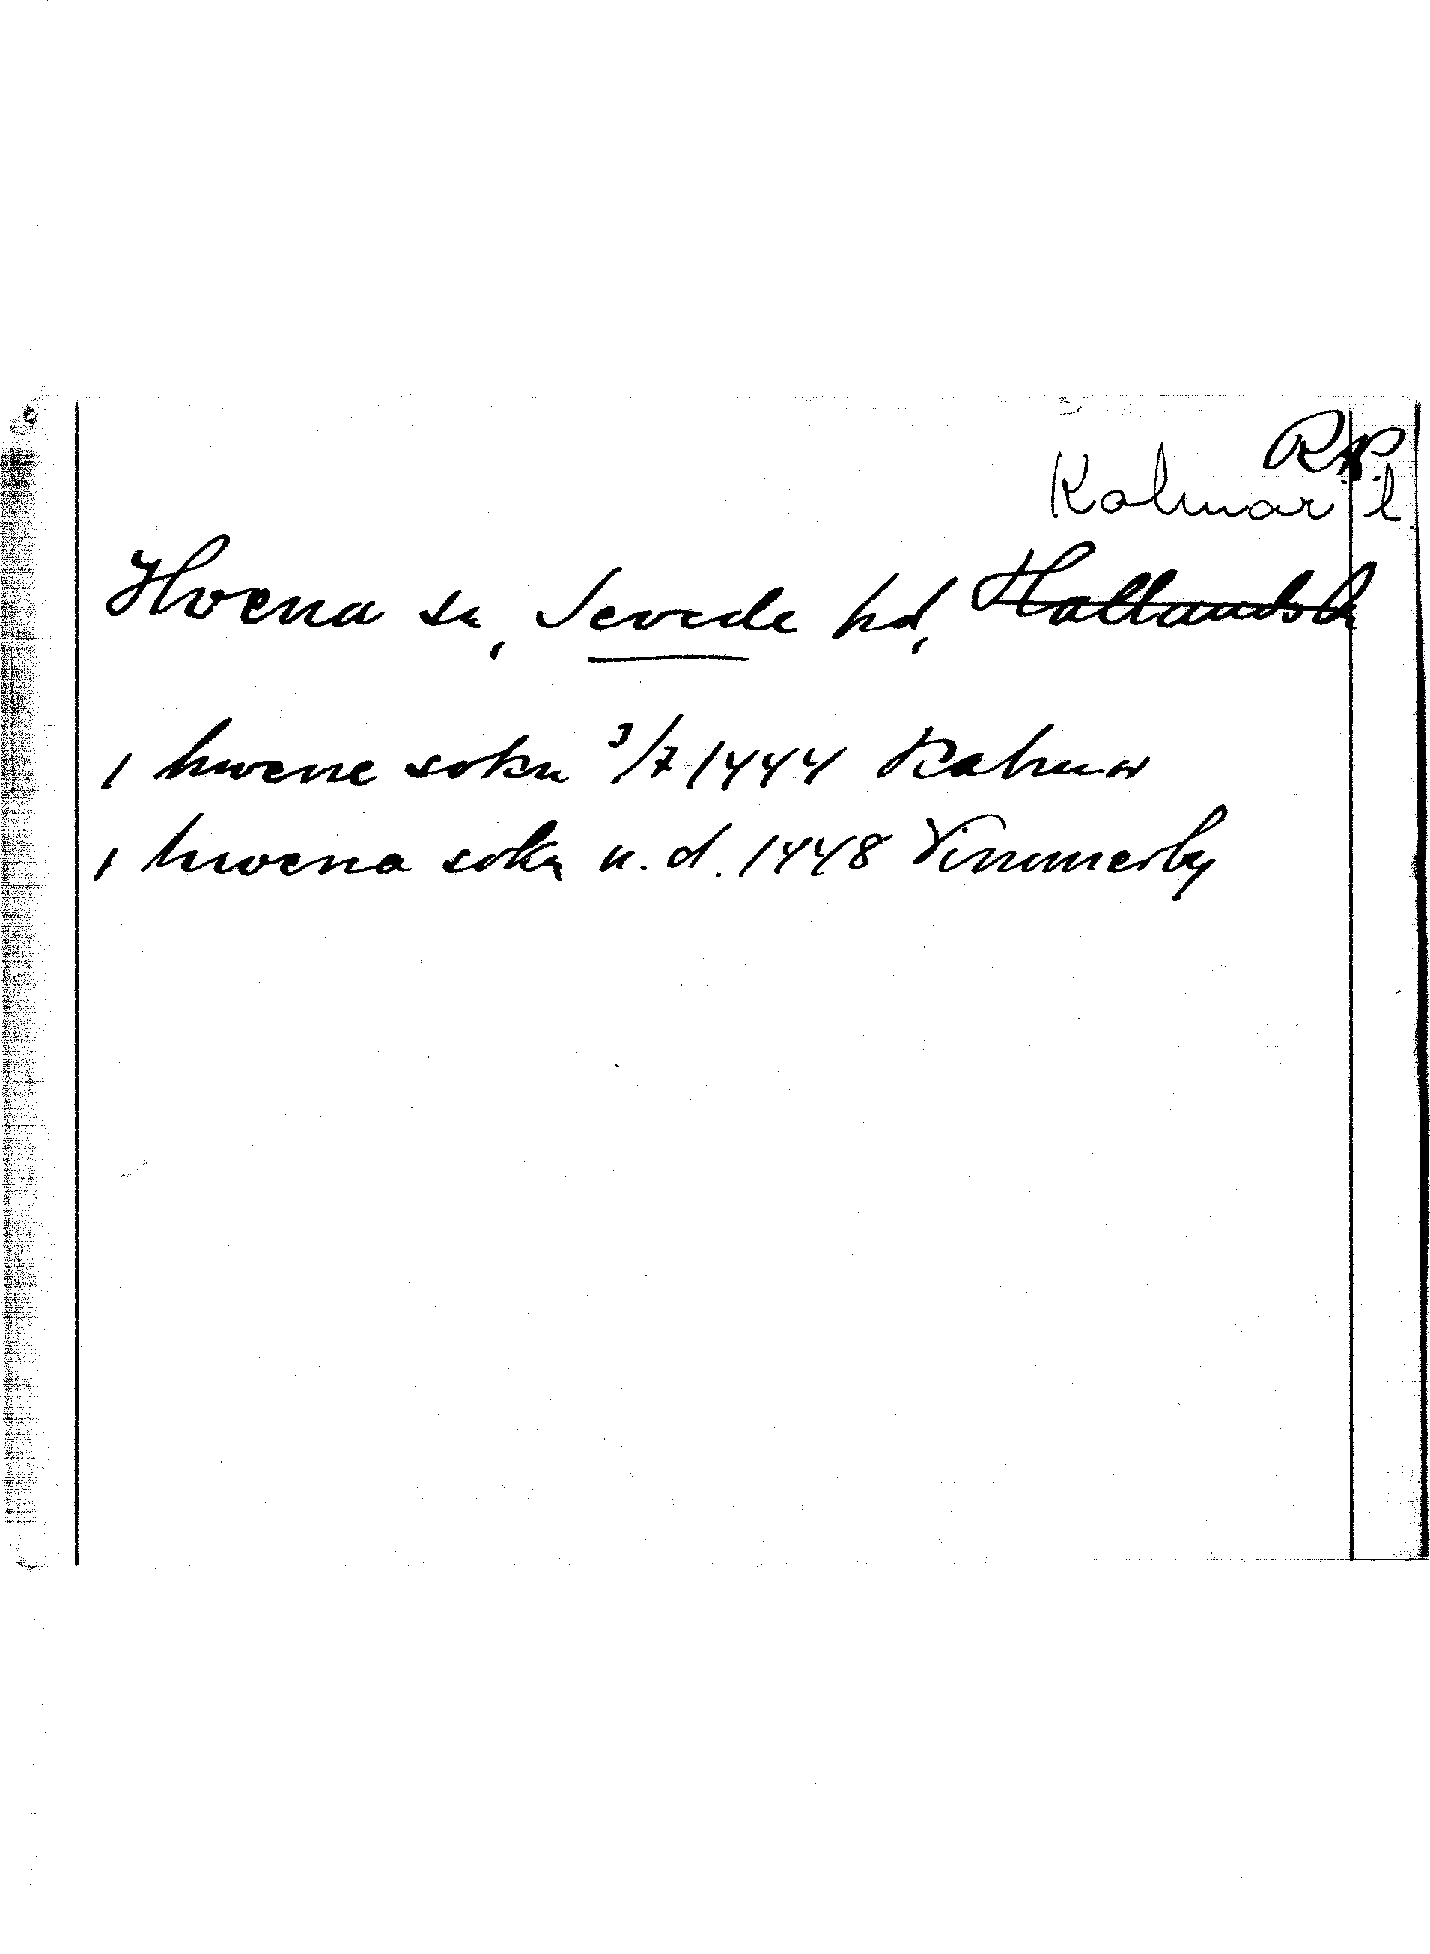 RAP
Kalmar l.
Hvena sn, Sevede hd, Hallands l
i hwene sokn 3/7 1444 Kalmar
i hwena sokn u.d. 1448 Vimmerby